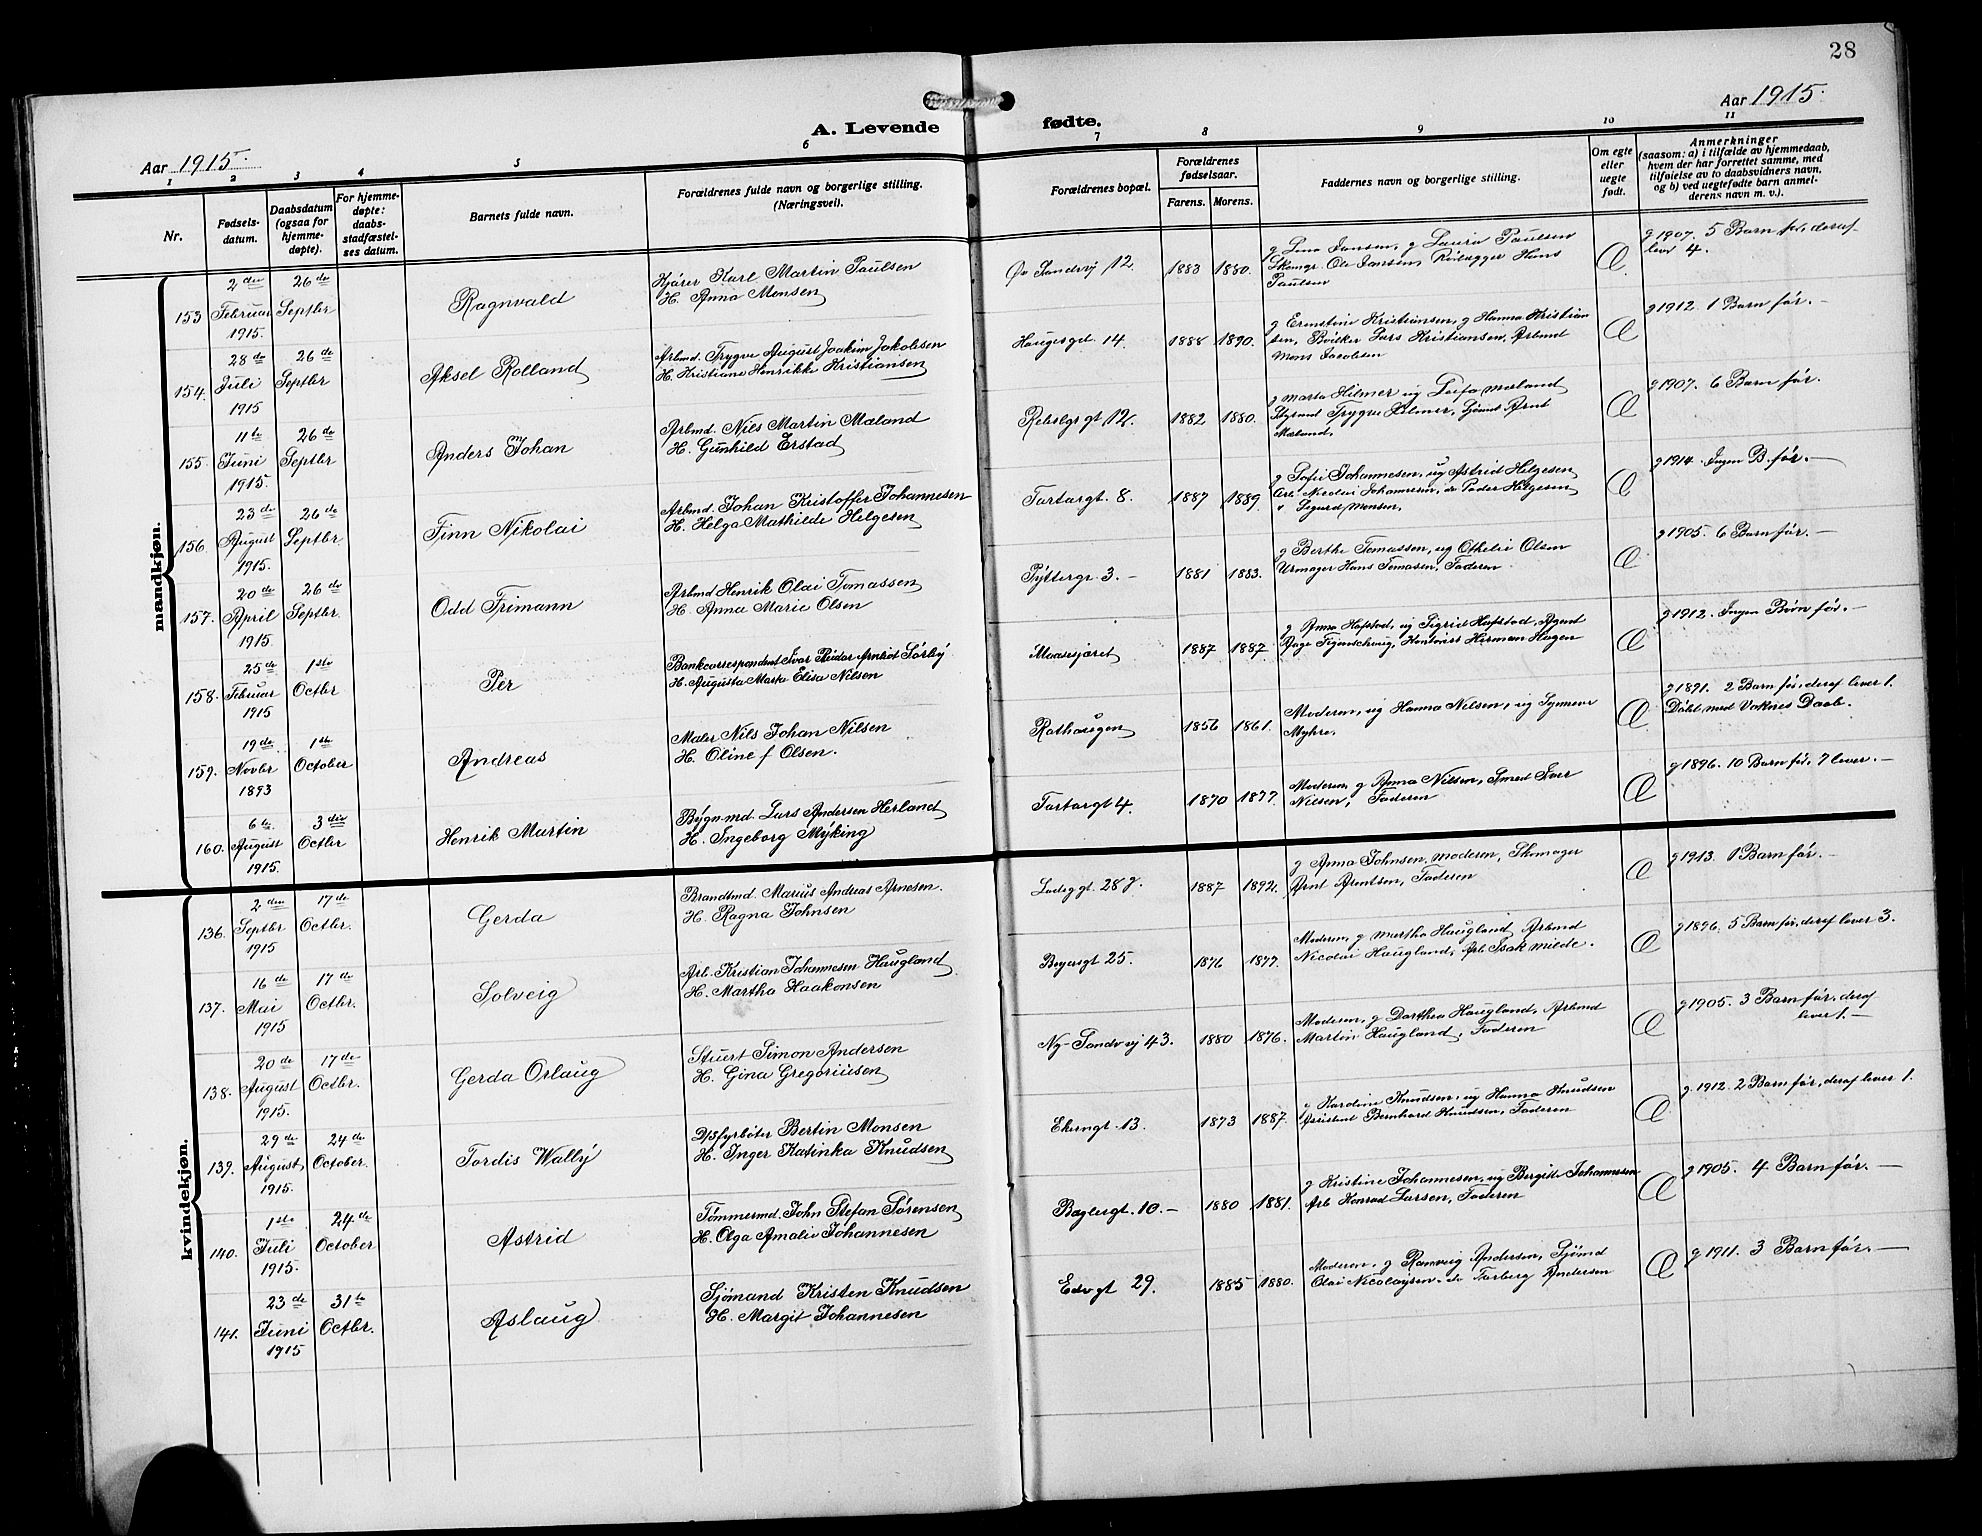 28
Aar 1915.
Aar 1915.
A. Levende fødte.
1 2 3 4 5 6 7 8 9 10 11
Nr.
Fødsels-
datum.
Daabsdatum
(ogsaa for
hjemme-
døpte).
For hjemme-
døpte:
daabs-
stadfæstel-
ses datum.
Barnets fulde navn.
Forældrenes fulde navn og borgerlige stilling.
(Næringsvei).
Forældrenes bopæl.
Forældrenes
fødselsaar.
Farens. Morens.
Faddernes navn og borgerlige stilling.
Om egte
eller
uegte
født.
Anmerkninger
(saasom: a) i tilfælde av hjemmedaab,
hvem der har forrettet samme, med
tilføielse av to daabsvidners navn,
og b) ved uegtefødte barn anmel-
derens navn m. v.).
mandkjøn.
153 2den Februar 1915. 26de Septbr Ragnvald
Kjører Karl Martin Paulsen
H. Anna Monsen
Øv Sandvj 12. 1883 1880.
g Lina Jansen, g Laura Paulsen
Skomgr. Ole Jansen, Hans
Paulsen
Æ.
g 1907. 5 Barn før, deraf
lever 4.
154. 28de Juli 1915 26de Septbr Aksel Rolland
Arbmd. Trygve August Joakim Jakobsen
H. Kristiane Henrikke Kristiansen
Haugesgt. 14. 1888 1890.
g Ernstine Kristiansen, g Hanna Kristian
sen, Lars Kristiansen, Arbmd
Mons Jacobsen
Æ
g 1912. 1 Barn før. -
155. 11te Juni 1915. 26de Septbr Anders Johan
Arbmd. Nils Martin Mæland
H. Gunhild Erstad
Rebslgs gt 12. 1882 1880.
g Marta Hilmer ug Mæland
Trygve Hilmer, Arnt
Mæland.
Æ
g 1907. 6 Barn før.
156. 23de August 1915. 26de Septbr. Finn Nikolai
Arbmd. Johan Kristoffer Johannesen
H. Helga Mathilde Helgesen
Tartargt. 8. 1887 1889.
g Sofie Johannesen, ug Astrid Helgesen
Arb. Nicolai Johannesen, do Peder Helgesen
Sigurd Monsen.
Æ
g 1914. Ingen B. før. -
157. 20de April 1915. 26de Septbr Odd Frimann
Arbmd Henrik Olai Tomassen
H. Anna Marie Olsen
Pyttergr. 3. - 1881 1883.
g Berthe Tomassen, ug Othelie Olsen
Urmager Hans Tomasen, Faderen.
Æ
g 1905. 6 Barn før. -
158. 25de Februar 1915 1ste Octbr Per
Bankcorrespondent Ivar Reidar Arntzot Sørby
H. Augusta Marta Elisa Nilsen
Maasesjæret 1887 1887
g Anna Hofstad, ug Sigrid Hofstad, Agent
Aage Figenschoug, Kontorist Herman Hagen
Æ
g 1912. Ingen Børn før. -
159. 19de Novbr 1893 1ste October Andreas
Maler Nils Johan Nilsen
H. Oline f Olsen.
Rothaugen 1856 1861.
Moderen, ug Hanna Nilsen, ug Synneve
Myhre.
Æ
g 1891. 2 Barn før, deraf lever 1.
Døbt med Voksnes Daab.
160. 6te August 1915. 3die Octbr Henrik Martin
Bygn.md. Lars Andersen Herland
H. Ingeborg Myking
Tartargt 4. 1870 1877.
Moderen, g Anna Nilsen, Smed Iver
Nilsen, Faderen
Æ
g 1896. 10 Barn før, 7 lever. -
kvindekjøn.
136. 2den Septbr 1915 17de Octbr. Gerda
Brandtmd. Marius Andreas Arnesen.
H. Ragna Johnsen
Ladeggt. 28 g. 1887 1892.
g Anna Johnsen, moderen, Skomager
Arnt Arntsen, Faderen
Æ
g 1913. 1 Barn før. -
137. 16de Mai 1915 17de Octbr. Solveig
Arb. Kristian Johannesen Haugland
H. Martha Haakonsen
Bøyersgt 25. 1876 1877.
Moderen, g Martha Haugland, Arbmd
Nicolai Haugland, Arb Isak Milde.
Æ
g 1896. 5 Barn før, deraf lever 3.
138. 20de August 1915. 17de Octbr. Gerda Orlaug
Stuert Simon Andersen
H. Gina Gregoriusen
Ny-Sandvj 43. 1880 1876.
Moderen, g Dorthea Haugland, Arbmd
Martin Haugland, Faderen
Æ
g 1905. 3 Barn før, deraf
lever 1. -
139. 29de August 1915. 24de October. Tordis Wally
D/S fyrbøter Bertin Monsen
H. Inger Katinka Knudsen
Ekerngt. 13. 1873 1887.
g Karoline Knudsen, ug Hanna Knudsen
Assistent Bernhard Knudsen, Faderen
Æ
g. 1912. 2 Barn før, deraf lever 1.
140. 1ste Juli 1915. 24de October Astrid
Tømmermd. John Stefan Sørensen
H. Olga Amalie Johannesen
Baglergt. 10. - 1880 1881.
g Kristine Johannesen, ug Bergitte Johannesen
Arb Konrad Larsen, Faderen
Æ
g 1905. 4 Barn før. -
141. 23de Juni 1915 31te Octbr. Aslaug
Sjømand Kristen Knudsen
H. Margit Johannesen
Edvgt 29. 1885 1880.
Moderen, g Ranveig Andersen, Sjømd
Olai Nicolaysen, do Torberg Andersen
Æ
g 1911. 3 Barn før. -